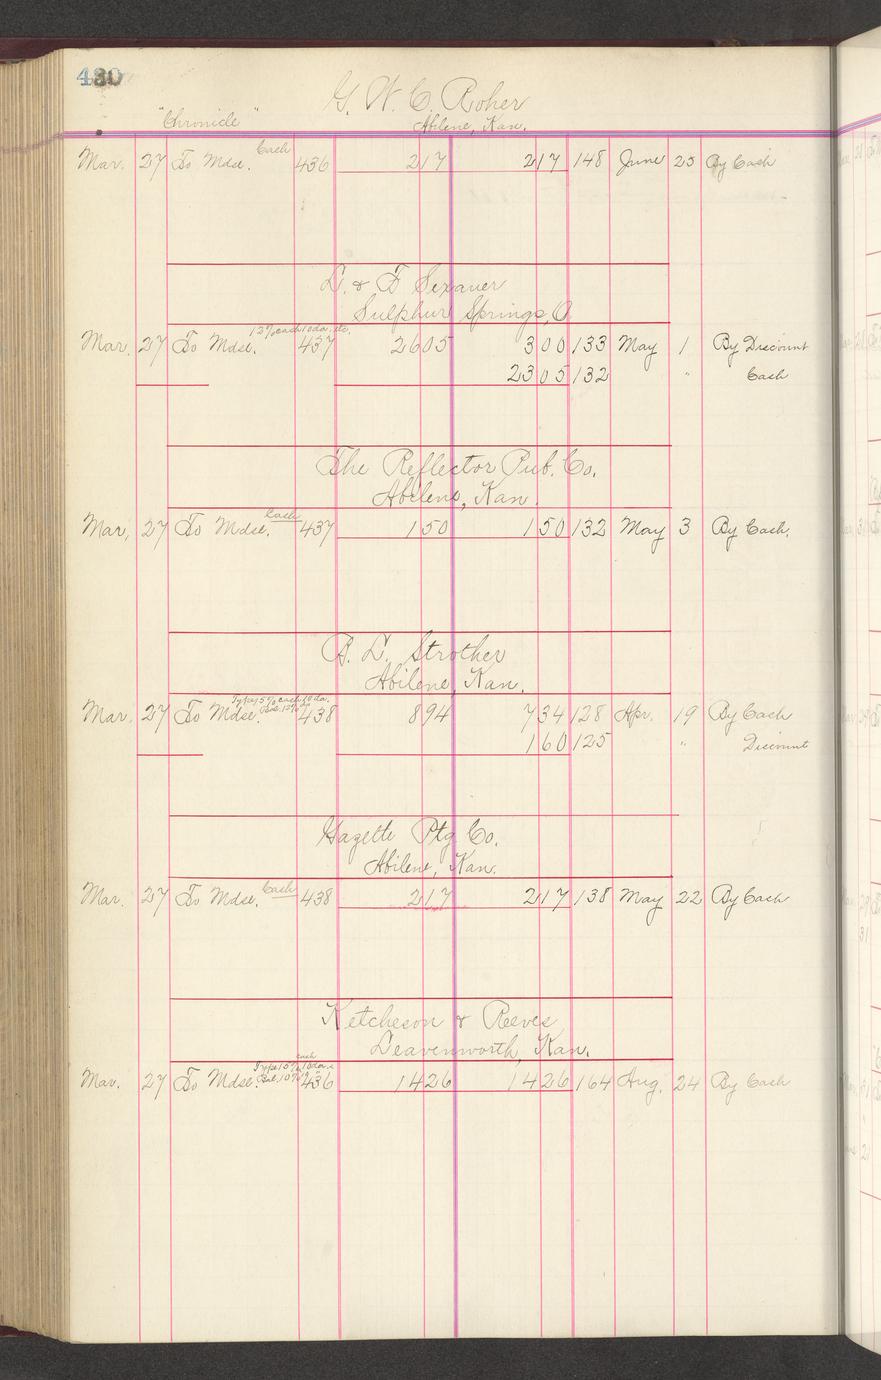 430
G. W. C. Roher
"Chronicle" Abilene, Kan.
Mar. 27 To Mdse. Cash 436 2 17 2 17 148 June 25 By Cash
L. & F Sexauer
Sulphur Springs, O.
12% cash 10 da. etc.
Mar. 27 To Mdse. 437 26 05 3 00 133 May 1 By Discount
23 05 132 " Cash
The Reflector Pub. Co.
Abilene, Kan.
Mar, 27 To Mdse. Cash 437 1 50 1 50 132 May 3 By Cash.
B. L. Strother
Abilene, Kan.
Type 15% cash 10 da.
Mar. 27 To Mdse. Bal. 12% do 438 8 94 7 34 128 Apr. 19 By Cash
1 60 125 " Discount
Gazette Ptg Co.
Abilene, Kan.
Mar. 27 To Mdse. Cash 438 2 17 2 17 138 May 22 By Cash
Ketcheson & Reeves
Leavenworth, Kan.
Type 15% cash 10 da.
Mar. 27 To Mdse. Bal. 10% 436 14 26 14 26 164 Aug. 24 By Cash